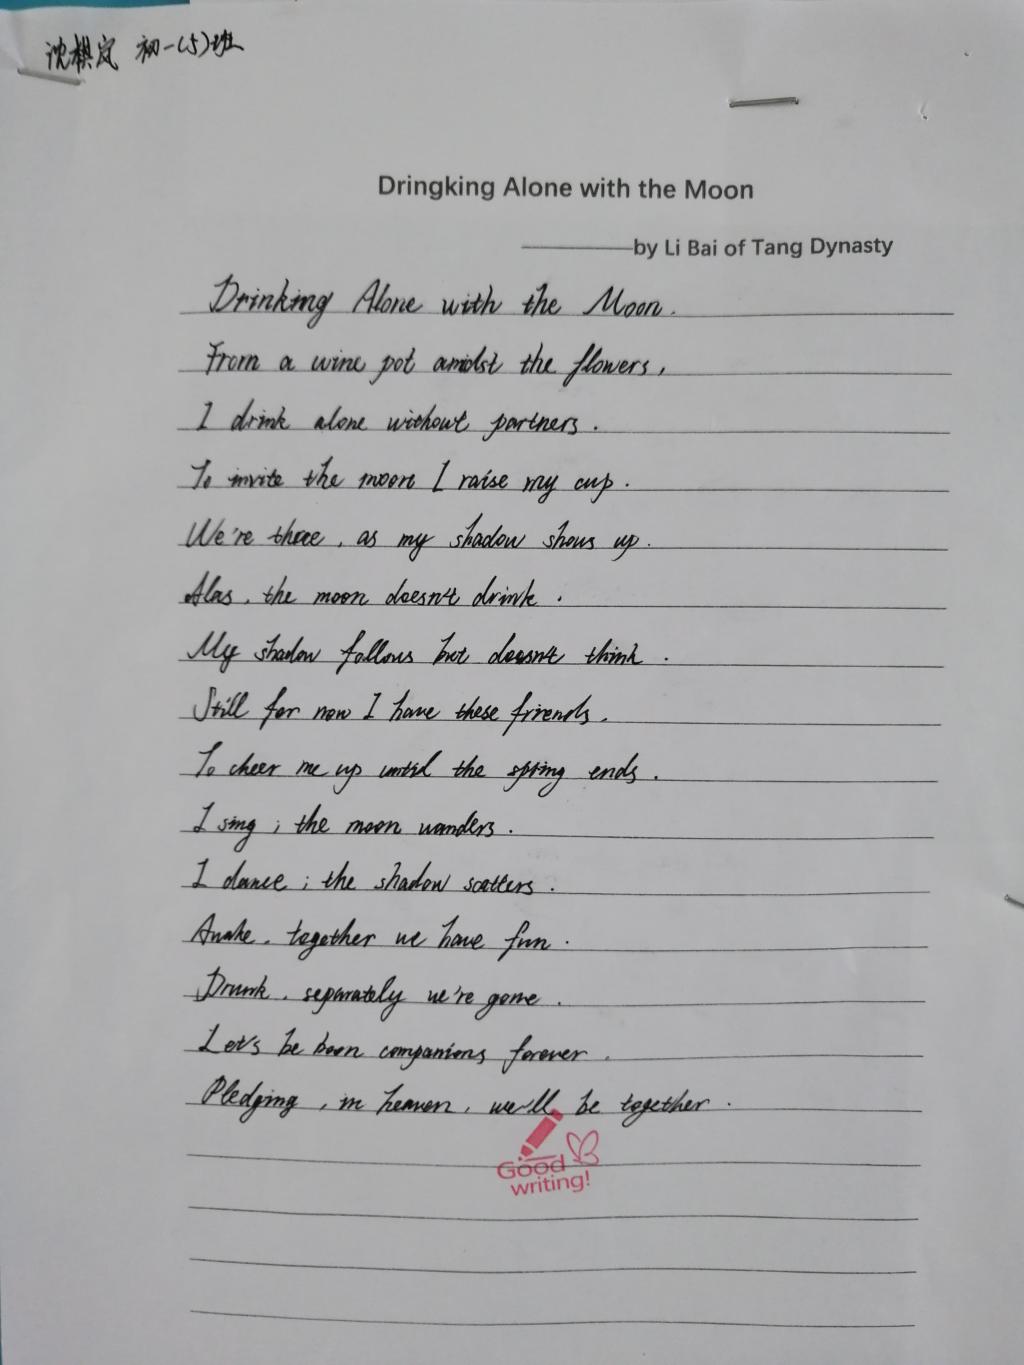 沈棋岚 初一(5)班
Dringking Alone with the Moon
————by Li Bai of Tang Dynasty
Drinking Alone with the Moon.
From a wine pot amidst the flowers,
I drink alone without partners.
To invite the moon I raise my cup.
We're three, as my shadow shows up.
Alas, the moon doesn't drink.
My shadow follows but doesn't think.
Still for now I have these friends,
To cheer me up until the spring ends.
I sing; the moon wanders.
I dance; the shadow scatters.
Awake, together we have fun.
Drunk, separately we're gone.
Let's be boon companions forever.
Pledging, in heaven, we'll be together.
Good
writing!